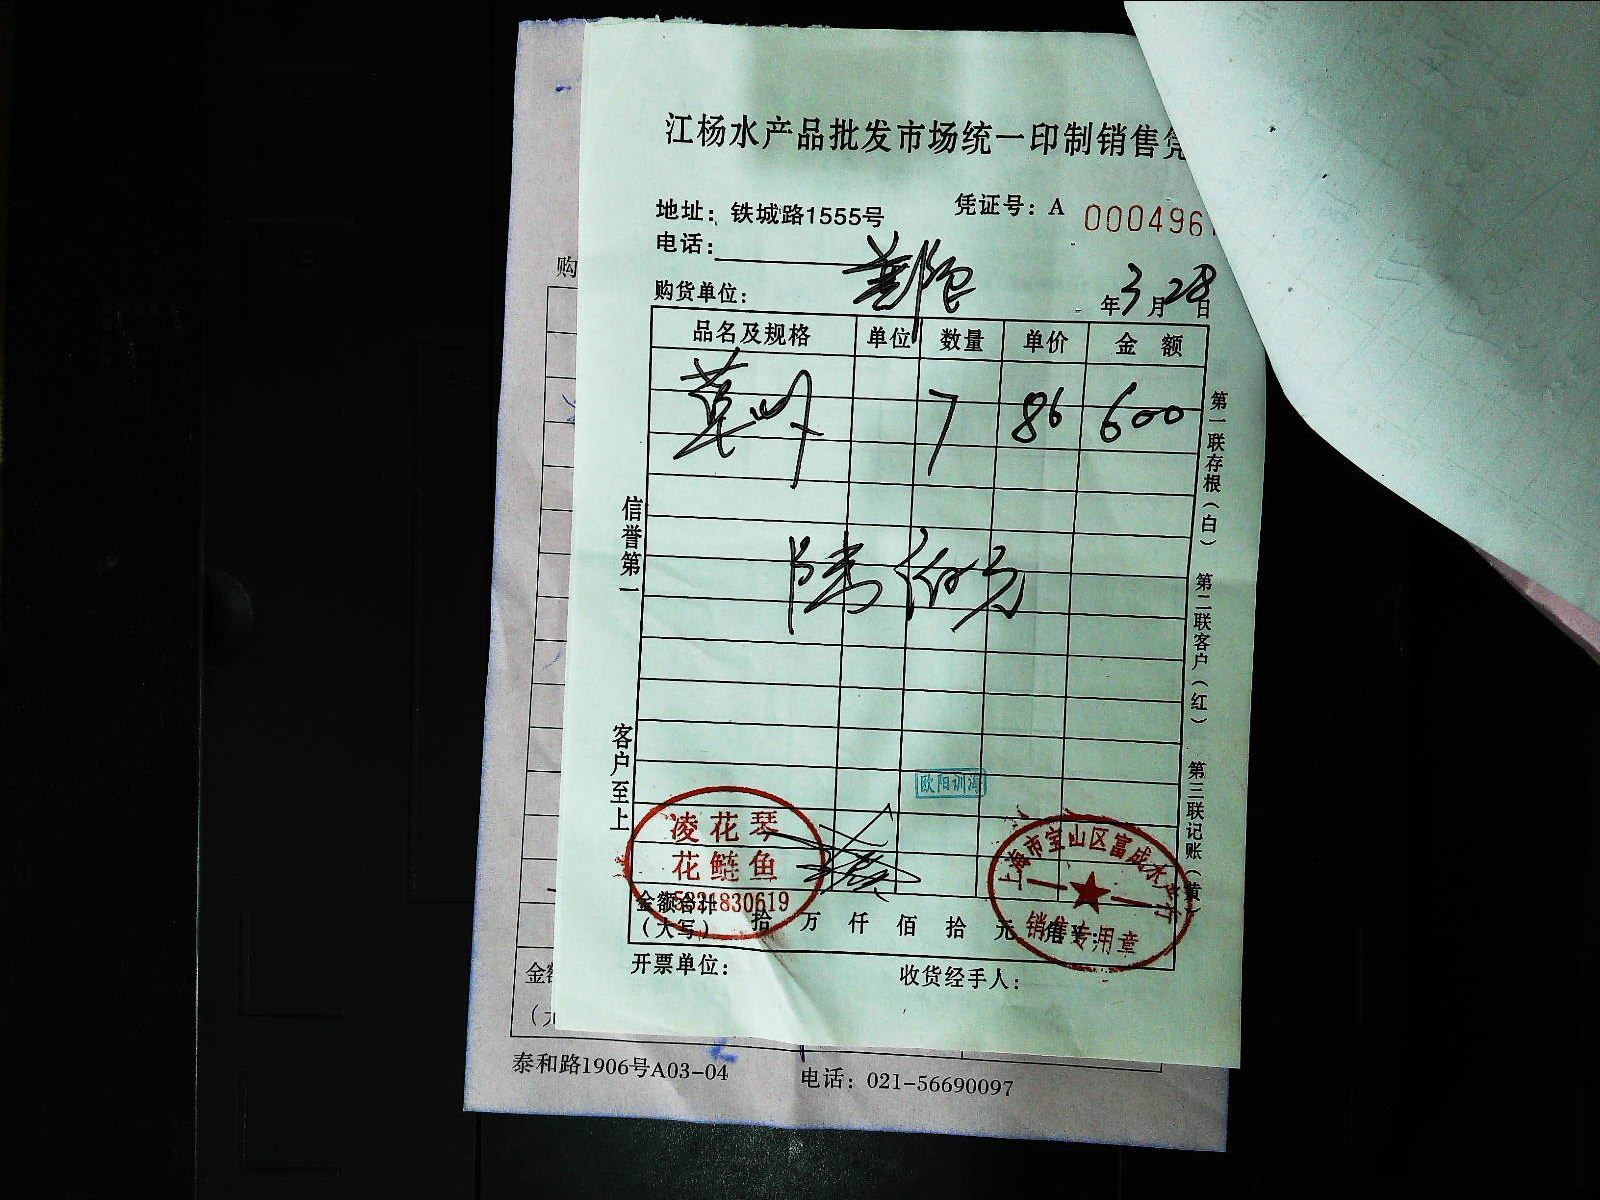 江杨水产品批发市场统一印制销售凭
地址：铁城路1555号
凭证号：A 000496
电话：
购货单位：
年3月28日
品名及规格 单位 数量 单价 金额
7 86 600
陆佰元
信誉第一
客户至上
第一联存根（白） 第二联客户（红） 第三联记账（黄）
欧阳训海
凌花琴
花鲢鱼
金额合计
（大写） 拾 万 仟 佰 拾 元
上海市宝山区富成水产行
销售专用章
开票单位：
收货经手人：
购
金额
泰和路1906号A03-04
电话：021-56690097